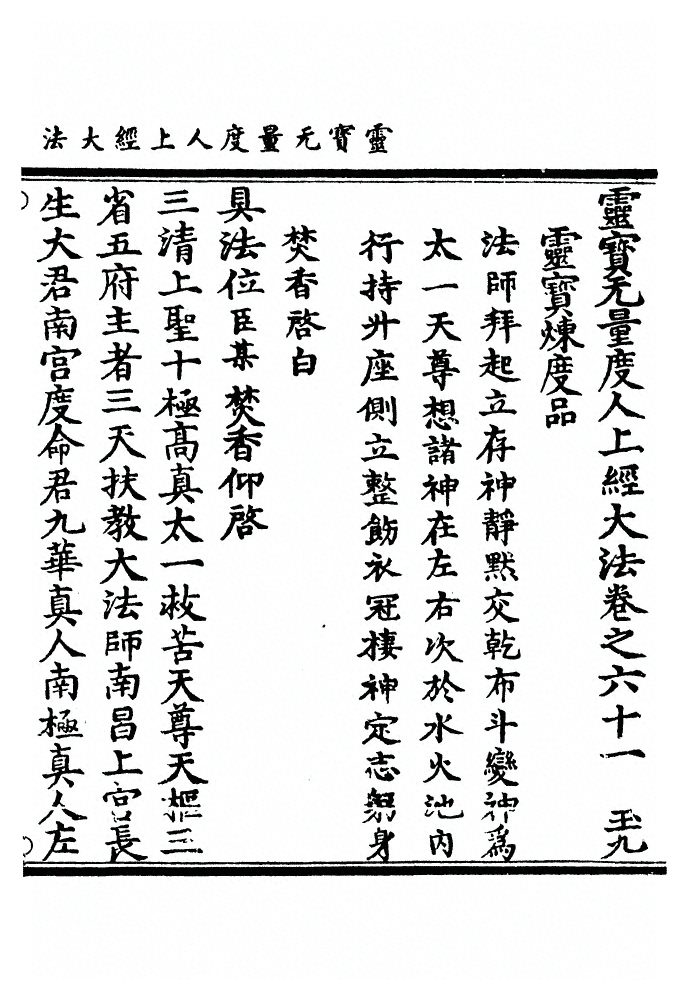 靈寶无量度人上經大法
靈寶无量度人上經大法卷之六十一 玉九
靈寶煉度品
法師拜起立存神靜默交乾布斗變神為
太一天尊想諸神在左右次於水火池內
行持升座側立整飭衣冠棲神定志躬身
焚香啓白
具法位臣某焚香仰啓
三清上聖十極高真太一救苦天尊天樞
省五府主者三天扶教大法師南昌上宮長
生大君南宮度命君九華真人南極真人左